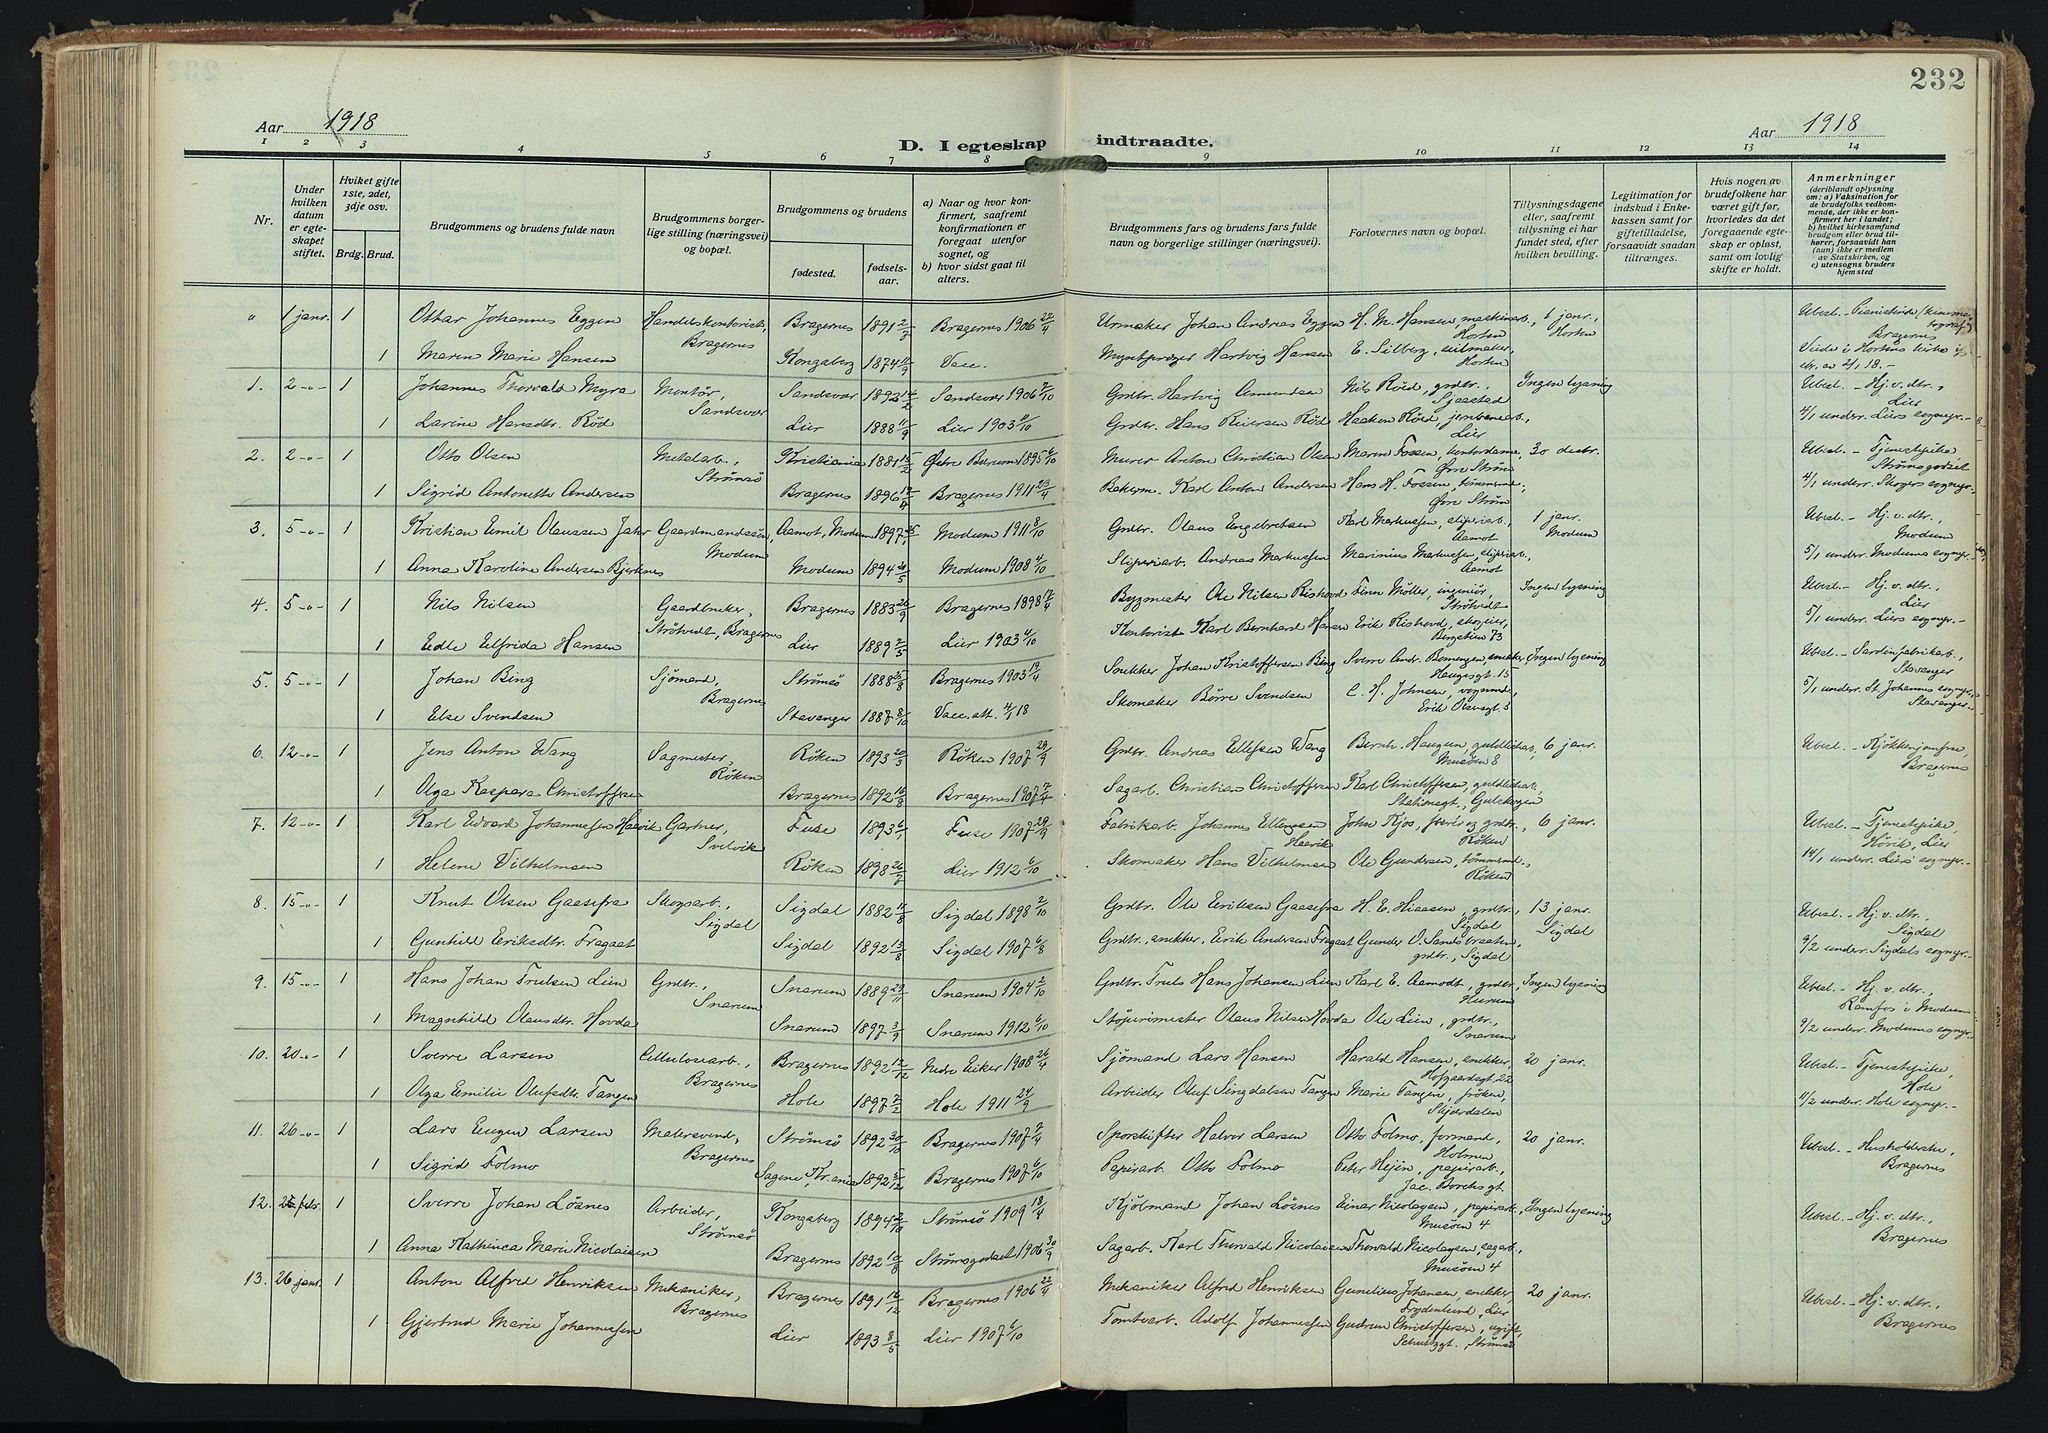 232
Aar 1918
D. I egteskap indtraadte.
Aar 1918
1 2 3 4 5 6 7 8 9 10 11 12 13 14
Nr.
Under hvilken datum er egteskapet stiftet.
Hviket gifte 1ste, 2det, 3dje osv.
Brdg. Brud.
Brudgommens og brudens fulde navn
Brudgommens borgerlige stilling (næringsvei) og bopæl.
Brudgommens og brudens
fødested.
fødselsaar.
a) Naar og hvor konfirmert, saafremt konfirmationen er foregaat utenfor sognet, og
b) hvor sidst gaat til alters.
Brudgommens fars og brudens fars fulde navn og borgerlige stillinger (næringsvei).
Forlovernes navn og bopæl.
Tillysningsdagene eller, saafremt tillysning ei har fundet sted, efter hvilken bevilling.
Legitimation for indskud i Enkekassen samt for giftetilladelse, forsaavidt saadan tiltrænges.
Hvis nogen av brudefolkene har været gift før, hvorledes da det foregaaende egteskap er opløst, samt om lovlig skifte er holdt.
Anmerkninger
(deriblandt oplysning om: a) Vaksination for de brudefolks vedkommende, der ikke er konfirmert her i landet; b) hvilket kirkesamfund brudgom eller brud tilhører, forsaavidt han (hun) ikke er medlem av Statskirken, og c) utensogns bruders hjemsted
" 1 janr. 1 Ottar Johannes Eggen Handelskontorist, Bragernes Bragernes 1891 2/2 Bragernes 1906 22/4 Urmaker Johan Andreas Eggen H. M. Hansen, maskinarb., Horten 6 janr., Horten Ubesl. - Pianistinde Bragernes
1 Maren Marie Hansen Kongsberg 1874 11/9 Vacc. Hartvig Hansen E. Silberg, seilmaker, Horten Viede i Hortens kirke
1. 2 -"- 1 Johannes Thorvald Myra Montør, Sandsvær Sandsvær 1892 14/2 Sandsvær 1906 7/10 Grdbr. Hartvig Amundsen Nils Röed, grdbr., Sjaastad Ingen lysning Ubesl. - Hj. v. dtr., Lier
1 Larine Hansdtr. Röd Lier 1888 11/9 Lier 1903 4/10 Grdbr. Hans Reiersen Röd Haaken Röed, jernbanearb., Lier 4/1 underr. Liers sognepr. -
2. 2 -"- 1 Otto Olsen Metalarb., Strømsö Kristiania 1881 15/2 Østre Bærum 1895 6/10 Murer Anton Christian Olsen Maren Fossen, kontordame, Øvre Strøm 30 decbr. Ubesl. - Tjenestepike, Strømsgodset
1 Sigrid Antonette Andersen Bragernes 1896 12/4 Bragernes 1911 23/4 Bakerm. Karl Anton Andersen Hans H. Fossen, tømmerm., Øvre Strøm 4/1 underr. Skogers sognepr.
3. 5 -"- 1 Kristian Emil Olaussen Jahr Gaardmandssön, Modum Aamot, Modum 1897 Modum 1911 8/10 Grdbr. Olaus Engebretsen Karl Markussen, sliperiarb., Aamot 1 janr. Modum Ubesl. - Hj. v. dtr., Modum
1 Anna Karoline Andersen Bjerknes Modum 1894 20/5 Modum 1908 4/10 Sliperiarb. Andreas Markussen Marinius Markussen, sliperiarb., Aamot 5/1 underr. Modums sognepr.
4. 5 -"- 1 Nils Nilsen Gaardbruker, Strötvedt, Bragernes Bragernes 1883 26/9 Bragernes 1898 17/4 Bygmester Ole Nilsen Rishovd Finn Møller, ingeniør, Strötvedt Ingen lysning Ubesl. - Hj. v. dtr., Lier
1 Edle Elfrida Hansen Lier 1889 2/5 Lier 1903 4/10 Kontorist Karl Bernhard Hansen Erik Rishovd, skogeier, Bergstien 73 5/1 underr. Liers sognepr. -
5. 5 -"- 1 Johan Bing Sjömand, Bragernes Strømsö 1888 25/8 Bragernes 1903 19/4 Snekker Johan Kristoffersen Bing Sverre Andr. Bomengen, snekker, Haugesgt. 15 Ingen lysning Ubesl. - Sardinfabrikarb., Stavanger
1 Else Svendsen Stavanger 1887 8/10 Vacc. att. 4/1 18 Skomaker Børre Svendsen C. H. Johnsen, vognmd., Erik Olsensgt. 3 5/1 underr. St. Johannes sognepr., Stavanger. -
6. 12 -"- 1 Jens Anton Wang Sagmester, Röken Röken 1893 20/3 Röken 1907 29/9 Grdbr. Andreas Ellefsen Wang Bernh. Haugen, guldlistarb., Musöen 8 6 janr. Ubesl. - Kjøkkenjomfru, Bragernes
1 Olga Kaspara Christoffersen Bragernes 1892 16/8 Bragernes 1907 7/4 Sagarb. Christian Christoffersen Karl Christoffersen, guldlistarb., Stationsgt., Gulskogen
7. 12 -"- 1 Karl Edvard Johannessen Haavik Gartner, Svelvik Fuse 1893 6/1 Fuse 1907 29/9 Fabrikarb. Johannes Ellingsen Haavik John Kjos, grdbr., Röken 6 janr. Ubesl. - Tjenestepike, Høvik, Lier
1 Helene Vilhelmsen Röken 1898 26/9 Lier 1912 6/10 Skomaker Hans Vilhelmsen Ole Gundersen, tømmerm., Röken 14/1 underr. Liers sognepr. -
8. 15 -"- 1 Knut Olsen Gaasefra Skogsarb., Sigdal Sigdal 1882 11/8 Sigdal 1898 2/10 Grdbr. Ole Eriksen Gaasefra H. E. Hiaasen, grdbr., Sigdal 13 janr. Sigdal Ubesl. - Hj. v. dtr., Sigdal
1 Gunhild Eriksdtr. Fragaat Sigdal 1892 13/8 Sigdal 1907 6/8 Grdbr., snekker, Erik Andersen Fragaat Gunder O. Sandsbraaten, grdbr., Sigdal 9/2 underr. Sigdals sognepr. -
9. 15 -"- 1 Hans Johan Trulsen Lien Grdbr., Snarum Snarum 1889 29/11 Snarum 1904 2/10 Grdbr. Truls Hans Johansen Lien Karl E. Aamodt, grdbr., Hurum Ingen lysning Ubesl. - Hj. v. dtr., Ramfos i Modum
1 Magnhild Olausdtr. Hovda Snarum 1897 3/9 Snarum 1912 6/10 Støperimester Olaus Nilsen Hovda Ole Lien, grdbr., Snarum 9/2 underr. Modums sognepr.
10. 20 -"- 1 Sverre Larsen Cellulosearb., Bragernes Bragernes 1892 12/12 Nedre Eiker 1908 26/4 Sjömand Lars Hansen Harald Hansen, snekker, Hofgaardsgt. 22 20 janr. Ubesl. - Tjenestepike, Hole
1 Olga Emilie Olufsdtr. Tangen Hole 1897 2/2 Hole 1911 24/9 Arbeider Oluf Singdalsen Tangen Marie Tangen, frøken, Skjærdalen 11/2 underr. Hole sognepr. -
11. 26 -"- 1 Lars Eugen Larsen Malersvend, Bragernes Strømsö 1892 30/10 Bragernes 1907 7/4 Sporskifter Halvor Larsen Otto Folmo, formand, Holmen 20 janr. Ubesl. - Husholderske, Bragernes
1 Sigrid Folmo Sagene, Kr.ania 1892 5/12 Bragernes 1907 6/10 Papirarb. Otto Folmo Peter Hejen, papirarb., Jac. Borchsgt.
12. 26 febr. 1 Sverre Johan Lösnes Arbeider, Strømsö Kongsberg 1894 2/10 Strømsö 1909 18/4 Kjöbmand Johan Lösnes Einar Nicolaysen, papirarb., Musöen 4 Ingen lysning Ubesl. - Hj. v. dtr., Bragernes
1 Anna Kathinca Marie Nicolaisen Bragernes 1892 10/8 Strømsgodset 1906 30/9 Sagarb. Karl Thorvald Nicolaisen Thorvald Nicolaysen, sagarb., Musöen 4
13. 26 janr. 1 Anton Alfred Henriksen Mekaniker, Bragernes Bragernes 1891 16/12 Bragernes 1906 22/4 Mekaniker Alfred Henriksen Gunelius Johansen, snekker, Frydenlund, Lier 20 janr. Ubesl. - Hj. v. dtr., Bragernes
1 Gjertrud Marie Johannessen Lier 1893 8/5 Lier 1907 6/10 Tomtearb. Adolf Johannessen Gudrun Christoffersen, ugift, Strømsö